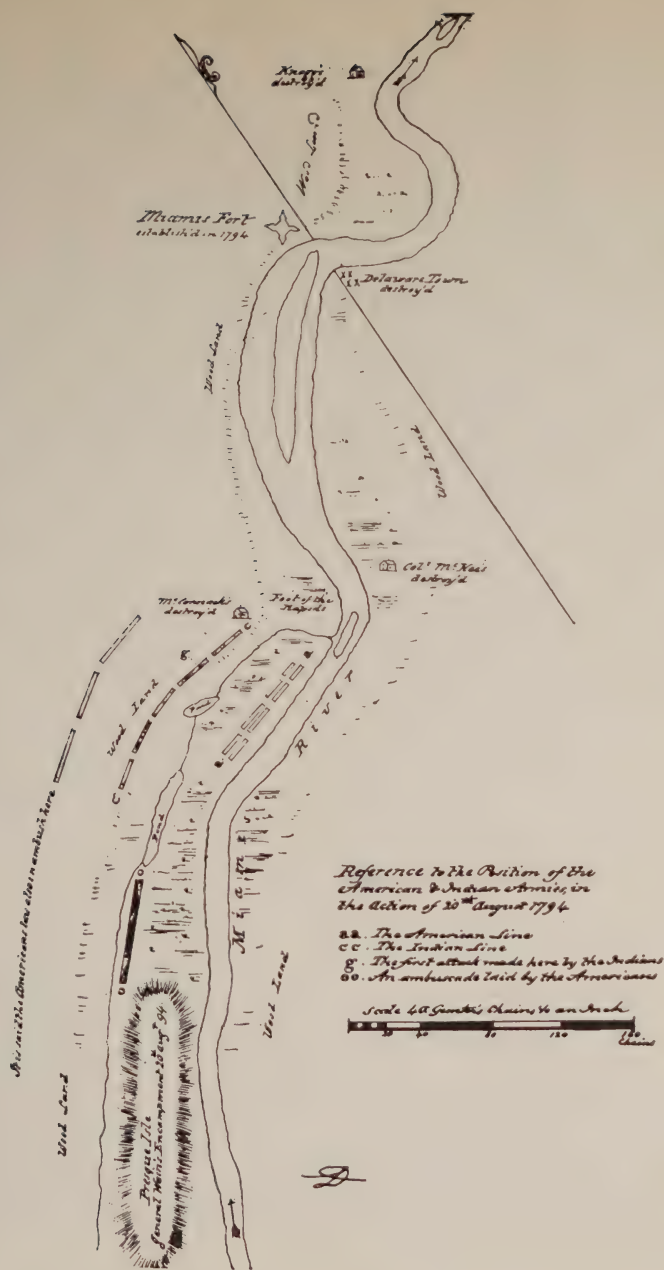 destroy'd
Wood Land
Miamis Fort
establish'd in 1794
Delaware Town
destroy'd
Wood Land
Wood Land
Col.ˢ McKee's
destroy'd
McCormack's
destroy'd
Foot of the
Rapids
c
g
a
Wood Land
Pond
a
c
Pond
Miamis River
It is said the Americans lay also in ambush here
o
o
Wood Land
Wood Land
Presque Isle
General Wain's Encampment 20 Augᵗ 94
Reference to the Position of the
American & Indian Armies, in
the Action of 20ᵗʰ August 1794
aa. The American Line
cc. The Indian Line
g. The first attack made here by the Indians
oo. An ambuscade laid by the Americans
Scale 40 Gunter's Chains to an Inch
20 40 80 120 160
Chains